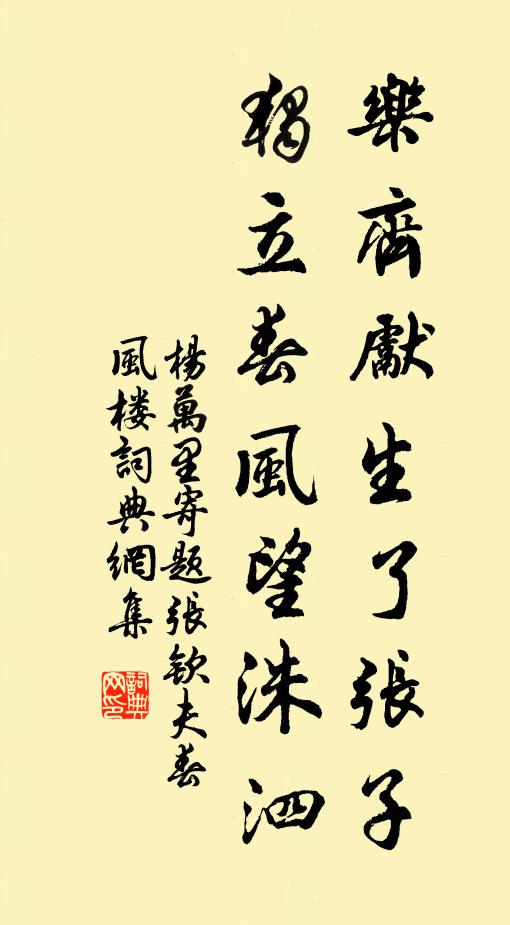 樂齋獻生了張子
獨立春風望洙泗
楊萬里寄題張欽夫春
風楼詞典網集
詞典
网印